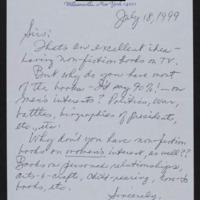 July 18, 1999
Sirs:
That's an excellent idea—
having non-fiction books on TV.
But why do you have most
of the books – I'd say 90%! – on
men's interests? Politics, war,
battles, biographies of presidents,
etc., etc.
Why don't you have non-fiction
books on women's interest, as well??
Books on personal relationships,
arts & crafts, child-rearing, how-to
books, etc.
Sincerely,